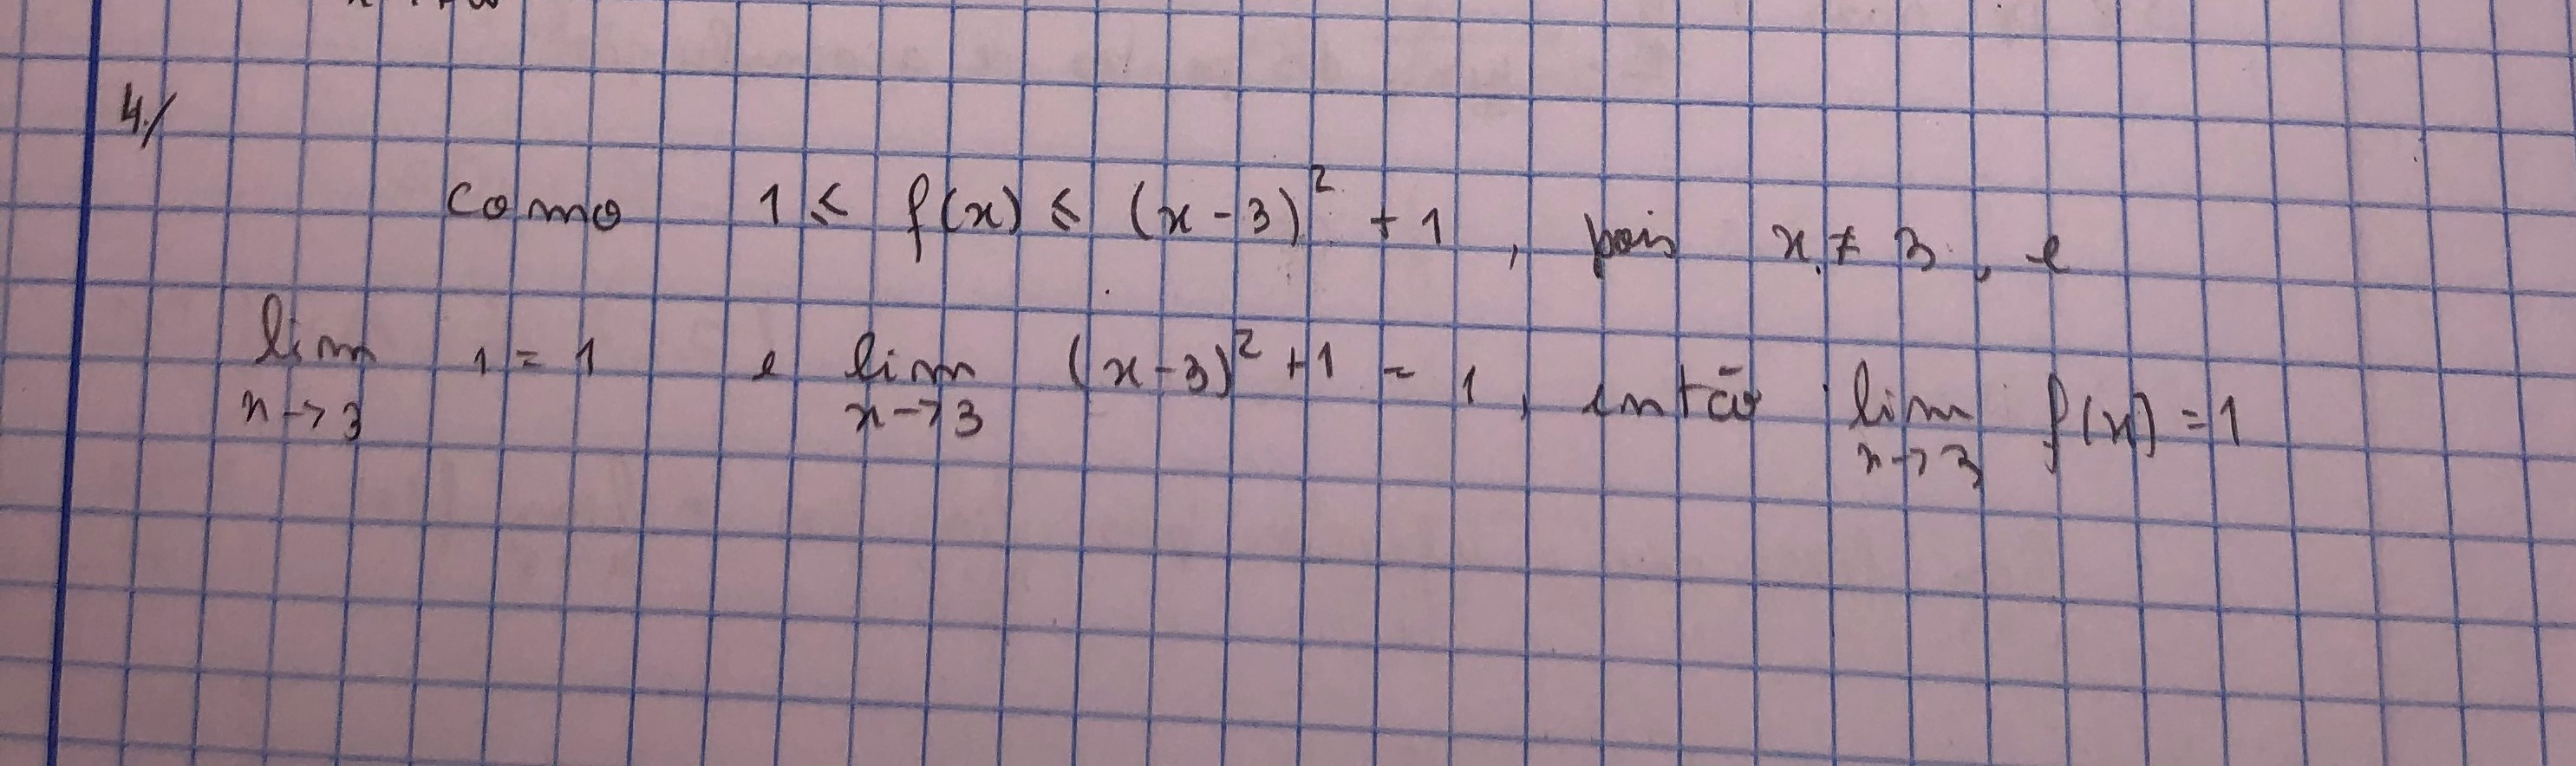 4/
Como 1 ≤ f(x) ≤ (x-3)² + 1, pois x ≠ 3, e
lim 1 = 1 e lim (x-3)² + 1 = 1, então lim f(x) = 1
x→3 x→3 x→3